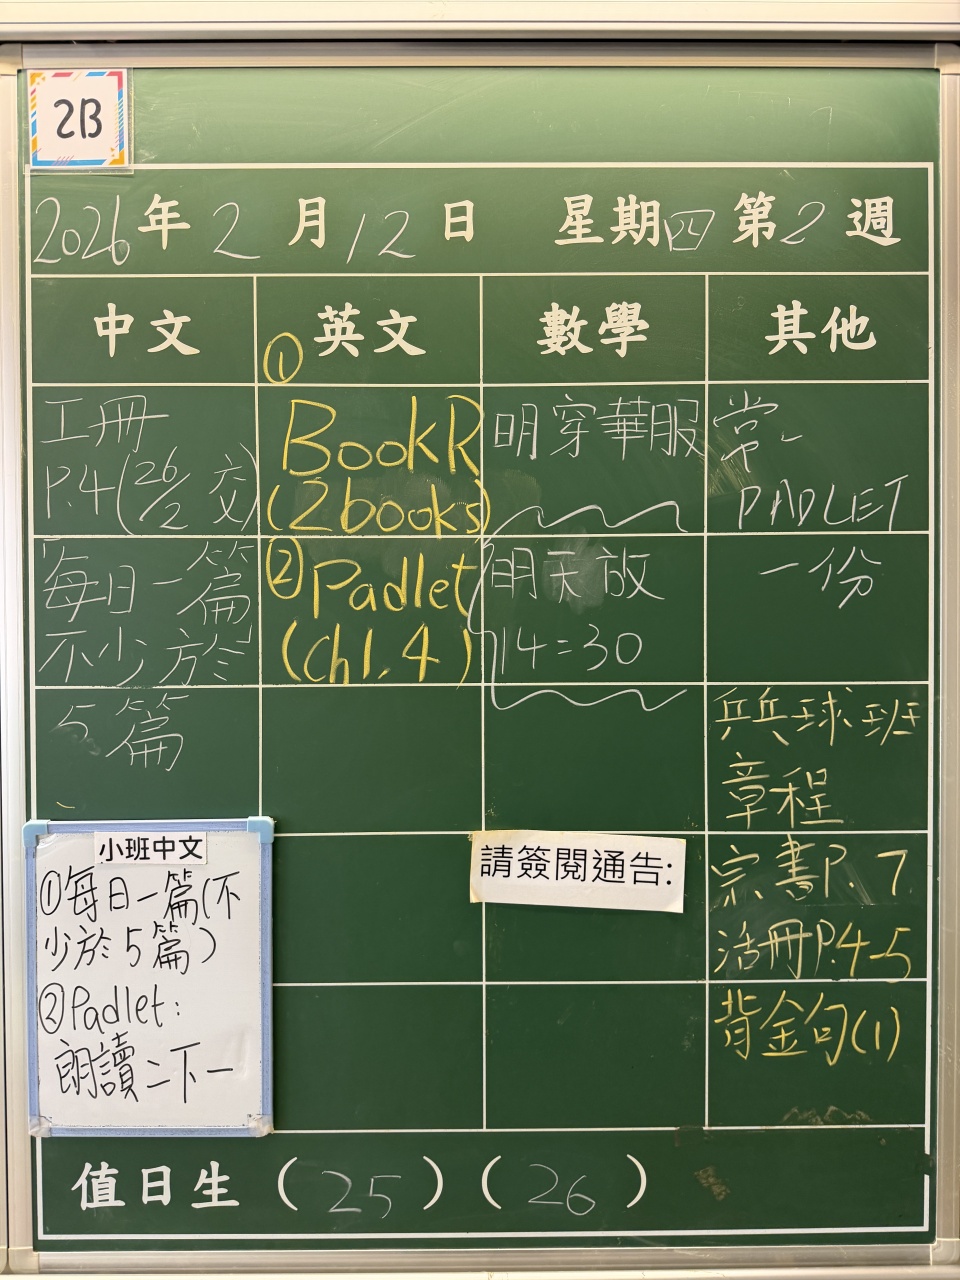 2B
2026年2月12日 星期四 第2週
中文
工冊
P.4(26/2 交)
每日一篇
不少於
5篇
小班中文
①每日一篇(不
少於5篇)
②Padlet:
朗讀二下一
英文
①
BookR
(2books)
②Padlet
(ch1.4)
數學
明穿華服
明天放
14:30
請簽閱通告:
其他
常
PADLET
一份
乒乓球班
章程
宗書P.7
活冊P.4-5
背金句(1)
值日生(25)(26)